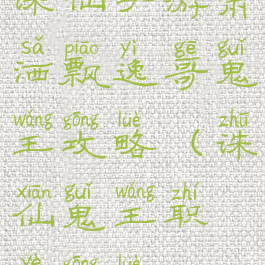 诛仙 游
sǎ piāo yì gē guǐ
洒飘逸哥鬼
wáng gōng lüè zhū
王攻略（诛
xiān guǐ wáng zhí
仙鬼王职
yè gōng lüè